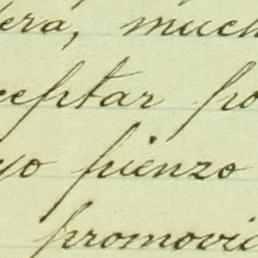 era, much
ceptar po
yo pienzo
promovie